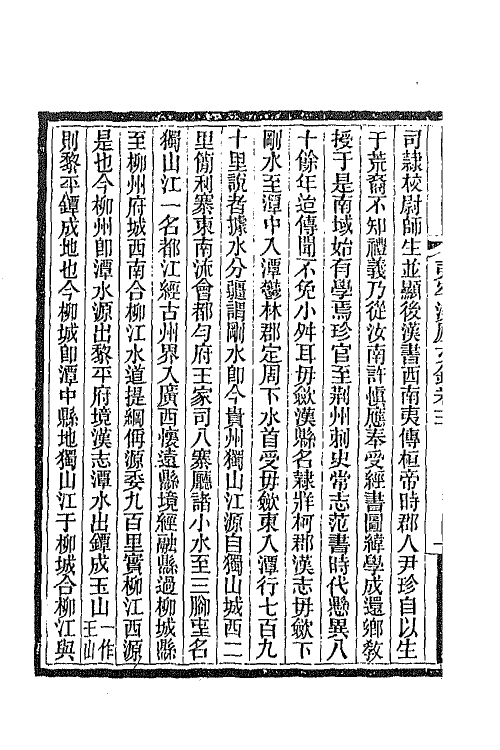 司隸校尉師生並顯後漢書西南夷傳桓帝時郡人尹珍自以生
于荒裔不知禮義乃從汝南許愼應奉受經書圖緯學成還鄉敎
授于是南域始有學焉珍官至荆州刺史常志范書時代懸異八
十餘年追傳聞不免小舛耳毋斂漢縣名隸牂柯郡漢志毋斂下
剛水至潭中入潭鬱林郡定周下水首受毋斂東入潭行七百九
十里說者據水分疆謂剛水卽今貴州獨山江源自獨山城西二
里簡利寨東南流會都勻府王家司八寨廳諸小水至三腳坉名
獨山江一名都江經古州界入廣西懷遠縣境經融縣過柳城縣
至柳州府城西南合柳江水道提綱侮源委九百里實柳江西源
是也今柳州卽潭水源出黎平府境漢志潭水出鐔成玉山一作王山
則黎平鐔成地也今柳城卽潭中縣地獨山江于柳城合柳江與